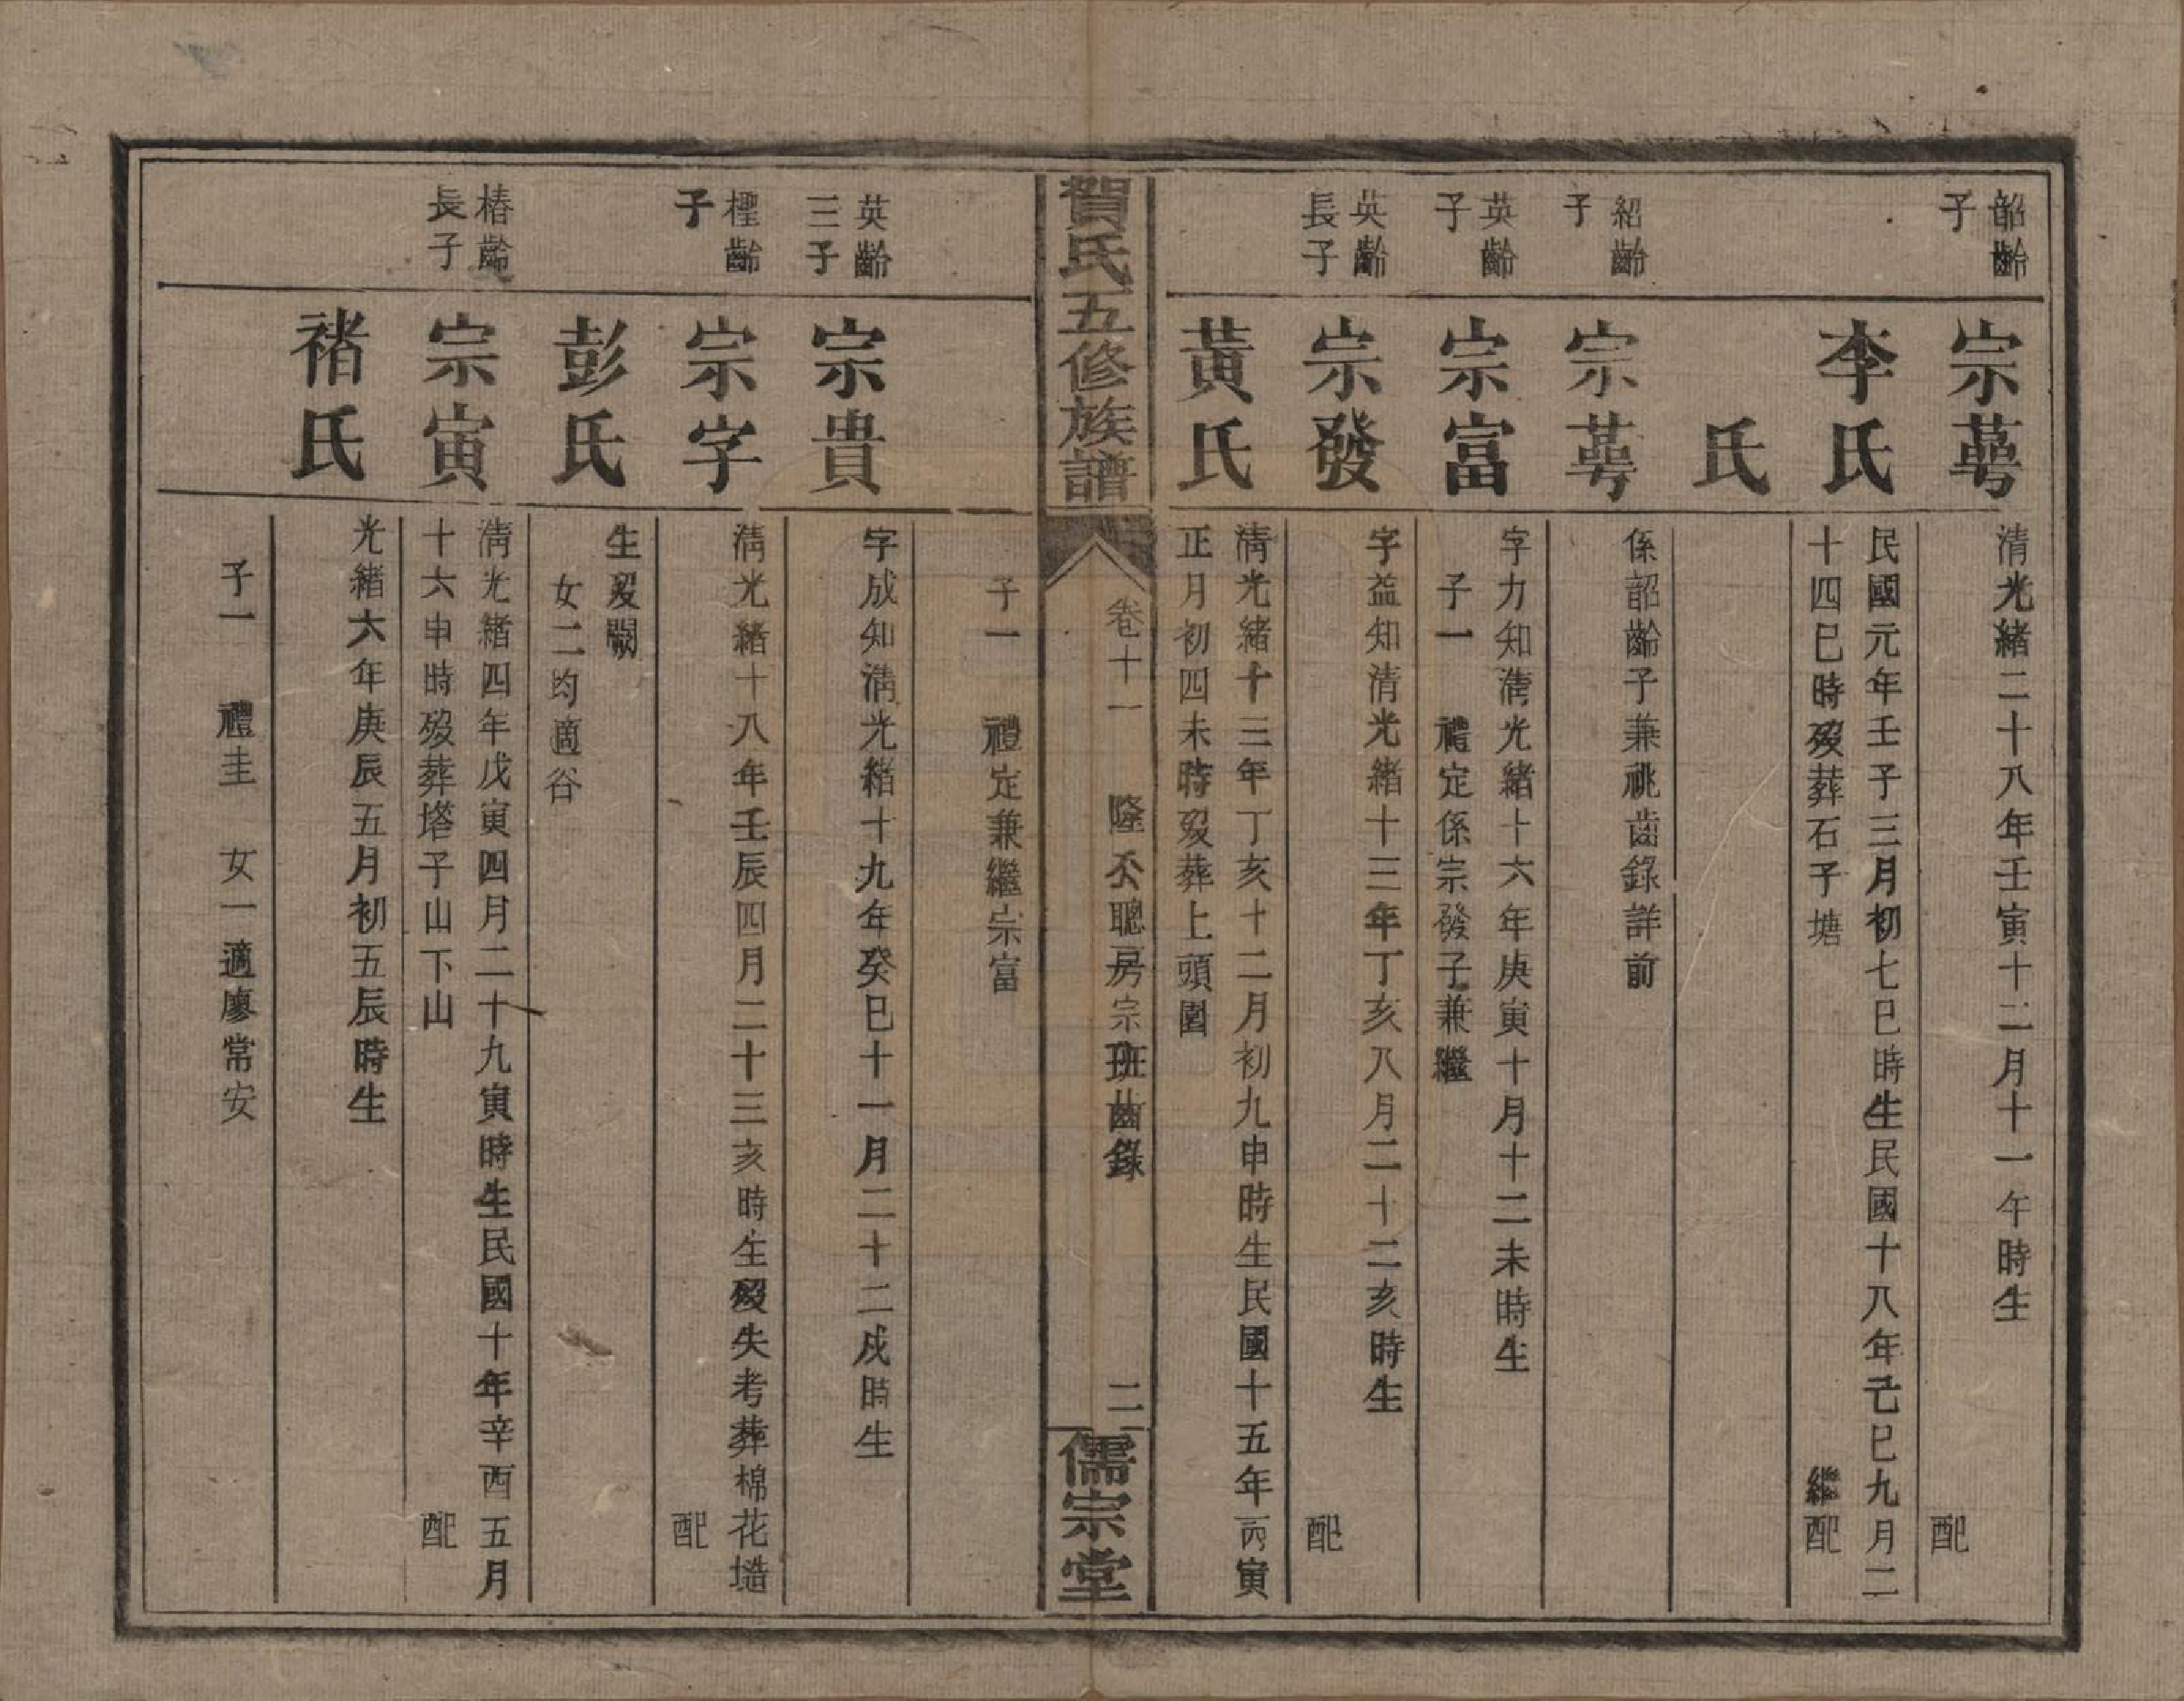 韶齡
子
宗萼
清光緒二十八年壬寅十二月十一午時生
配
李氏
民國元年壬子三月初七巳時生民國十八年己巳九月二
十四巳時歿葬石子塘
繼配
氏
紹齡
子
宗萼
係韶齡子兼祧齒錄詳前
英齡
子
宗富
字力知清光緒十六年庚寅十月十二未時生
子一 禮定係宗發子兼繼
英齡
長子
宗發
字益知清光緒十三年丁亥八月二十二亥時生
配
黃氏
清光緒十三年丁亥十二月初九申時生民國十五年丙寅
正月初四未時歿葬上頭園
賀氏五修族譜
卷十一
隆公聰房宗班齒錄
二
儒宗堂
子一 禮定兼繼宗富
英齡
三子
宗貴
字成知清光緒十九年癸巳十一月二十二戌時生
檉齡
子
宗字
清光緒十八年壬辰四月二十三亥時生歿失考葬棉花塏
配
彭氏
生歿闕
女二均適谷
椿齡
長子
宗寅
清光緒四年戊寅四月二十九寅時生民國十年辛酉五月
十六申時歿葬塔子山下山
配
褚氏
光緒六年庚辰五月初五辰時生
子一 禮圭 女一適廖常安